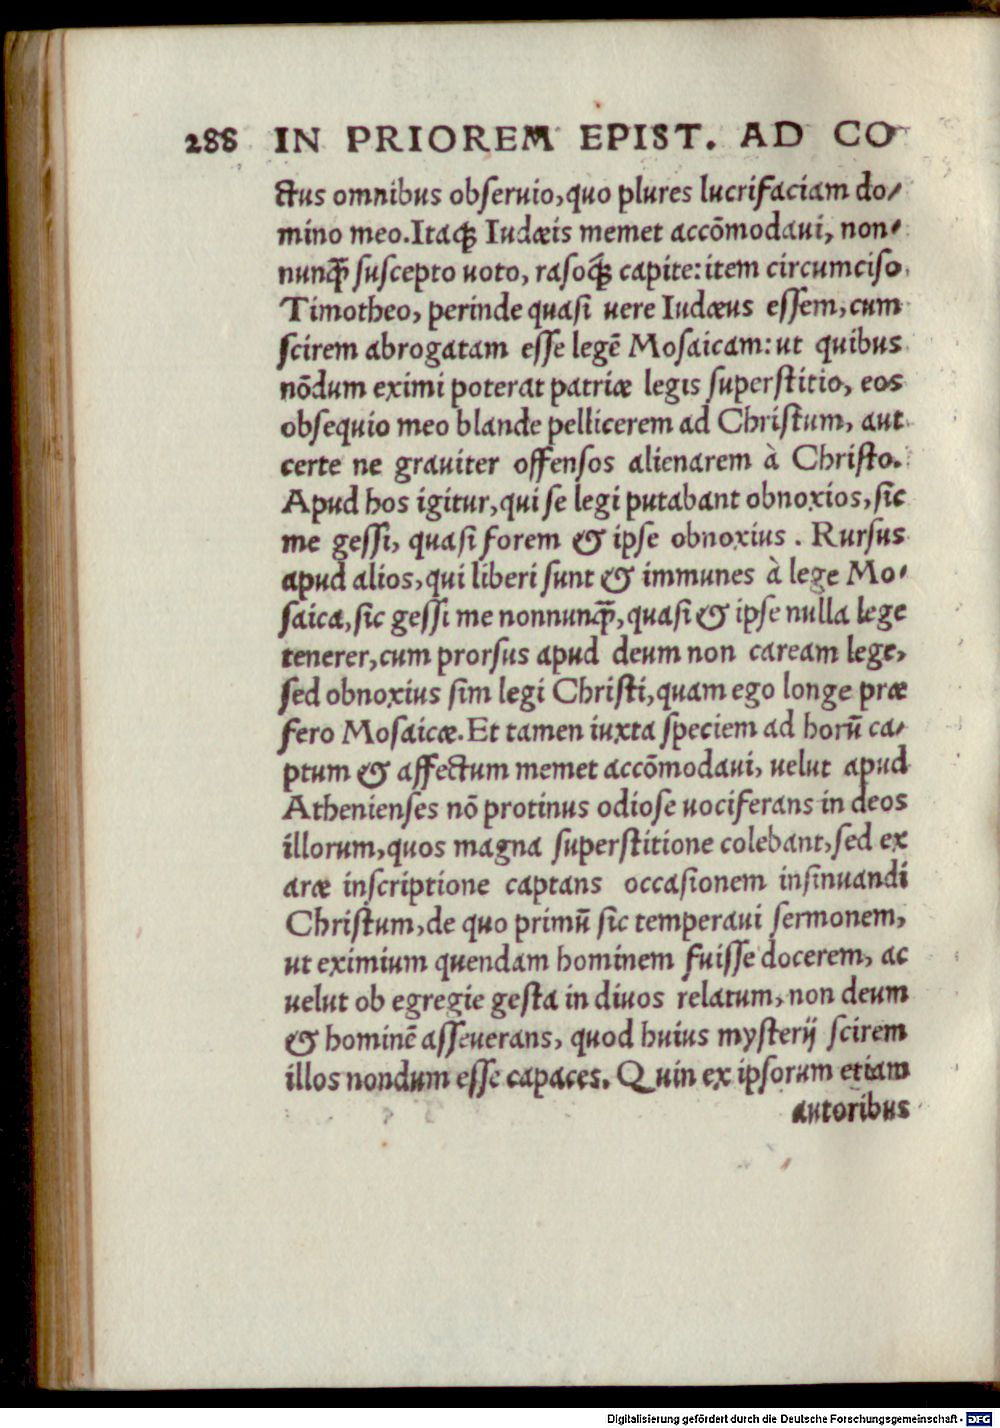 288 IN PRIOREM EPIST. AD CO
ctus omnibus obseruio, quo plures lucrifaciam do-
mino meo. Itaq; Iudæis memet accōmodaui, non-
nunq̃ suscepto uoto, rasoq́; capite: item circumciso
Timotheo, perinde quasi uere Iudæus essem, cum
scirem abrogatam esse legē Mosaicam: ut quibus
nōdum eximi poterat patriæ legis superstitio, eos
obsequio meo blande pellicerem ad Christum, aut
certe ne grauiter offensos alienarem à Christo.
Apud hos igitur, qui se legi putabant obnoxios, sic
me gessi, quasi forem & ipse obnoxius. Rursus
apud alios, qui liberi sunt & immunes à lege Mo-
saica, sic gessi me nonnunq̃, quasi & ipse nulla lege
tenerer, cum prorsus apud deum non caream lege,
sed obnoxius sim legi Christi, quam ego longe præ
fero Mosaicæ. Et tamen iuxta speciem ad horū ca-
ptum & affectum memet accōmodaui, uelut apud
Athenienses nō protinus odiose uociferans in deos
illorum, quos magna superstitione colebant, sed ex
aræ inscriptione captans occasionem insinuandi
Christum, de quo primū sic temperaui sermonem,
ut eximium quendam hominem fuisse docerem, ac
uelut ob egregie gesta in diuos relatum, non deum
& hominē asseuerans, quod huius mysterij scirem
illos nondum esse capaces. Quin ex ipsorum etiam
autoribus
Digitalisierung gefördert durch die Deutsche Forschungsgemeinschaft - DFG